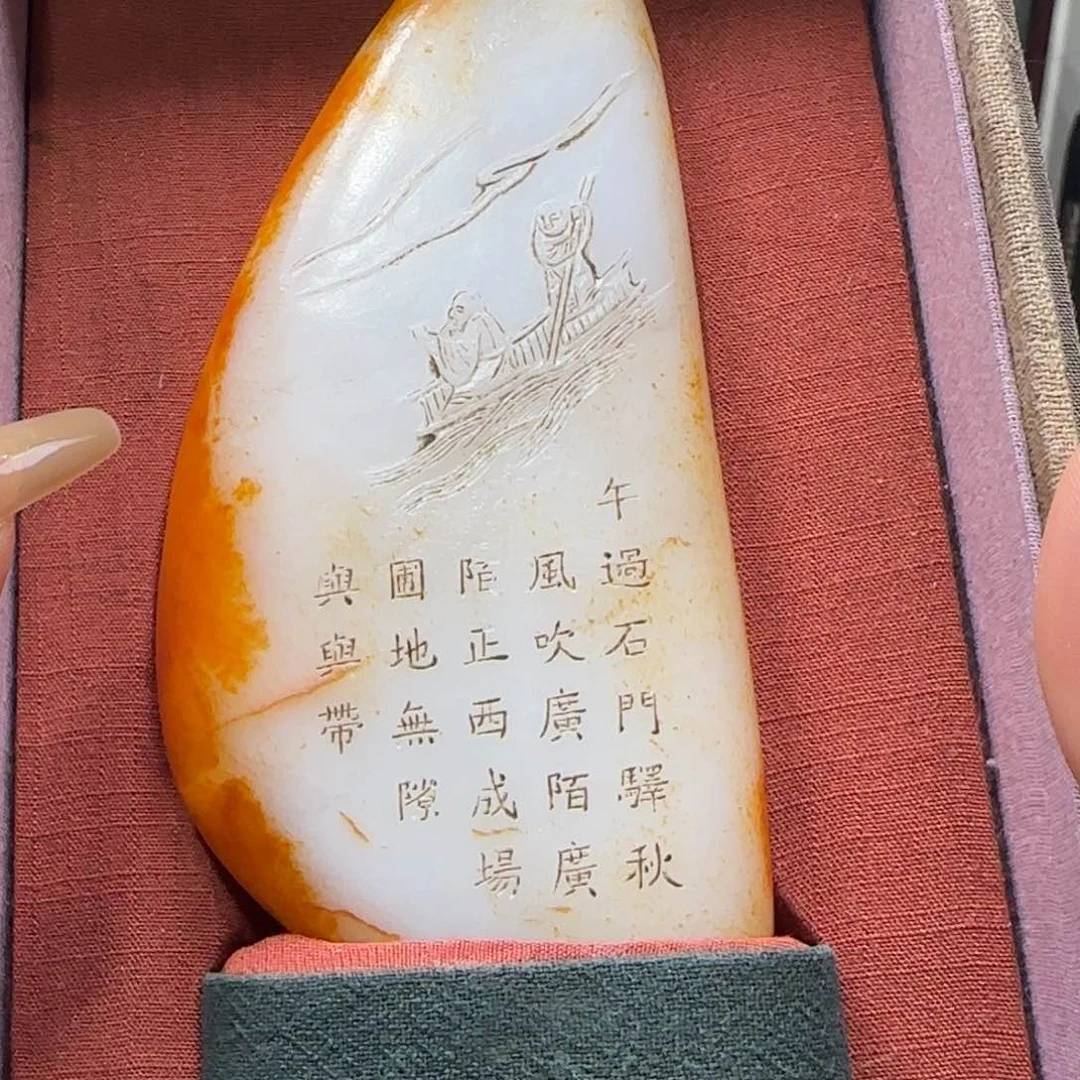 午過石門驛秋
風吹廣陌廣
陌正西成場
圃地無隙
與與帶